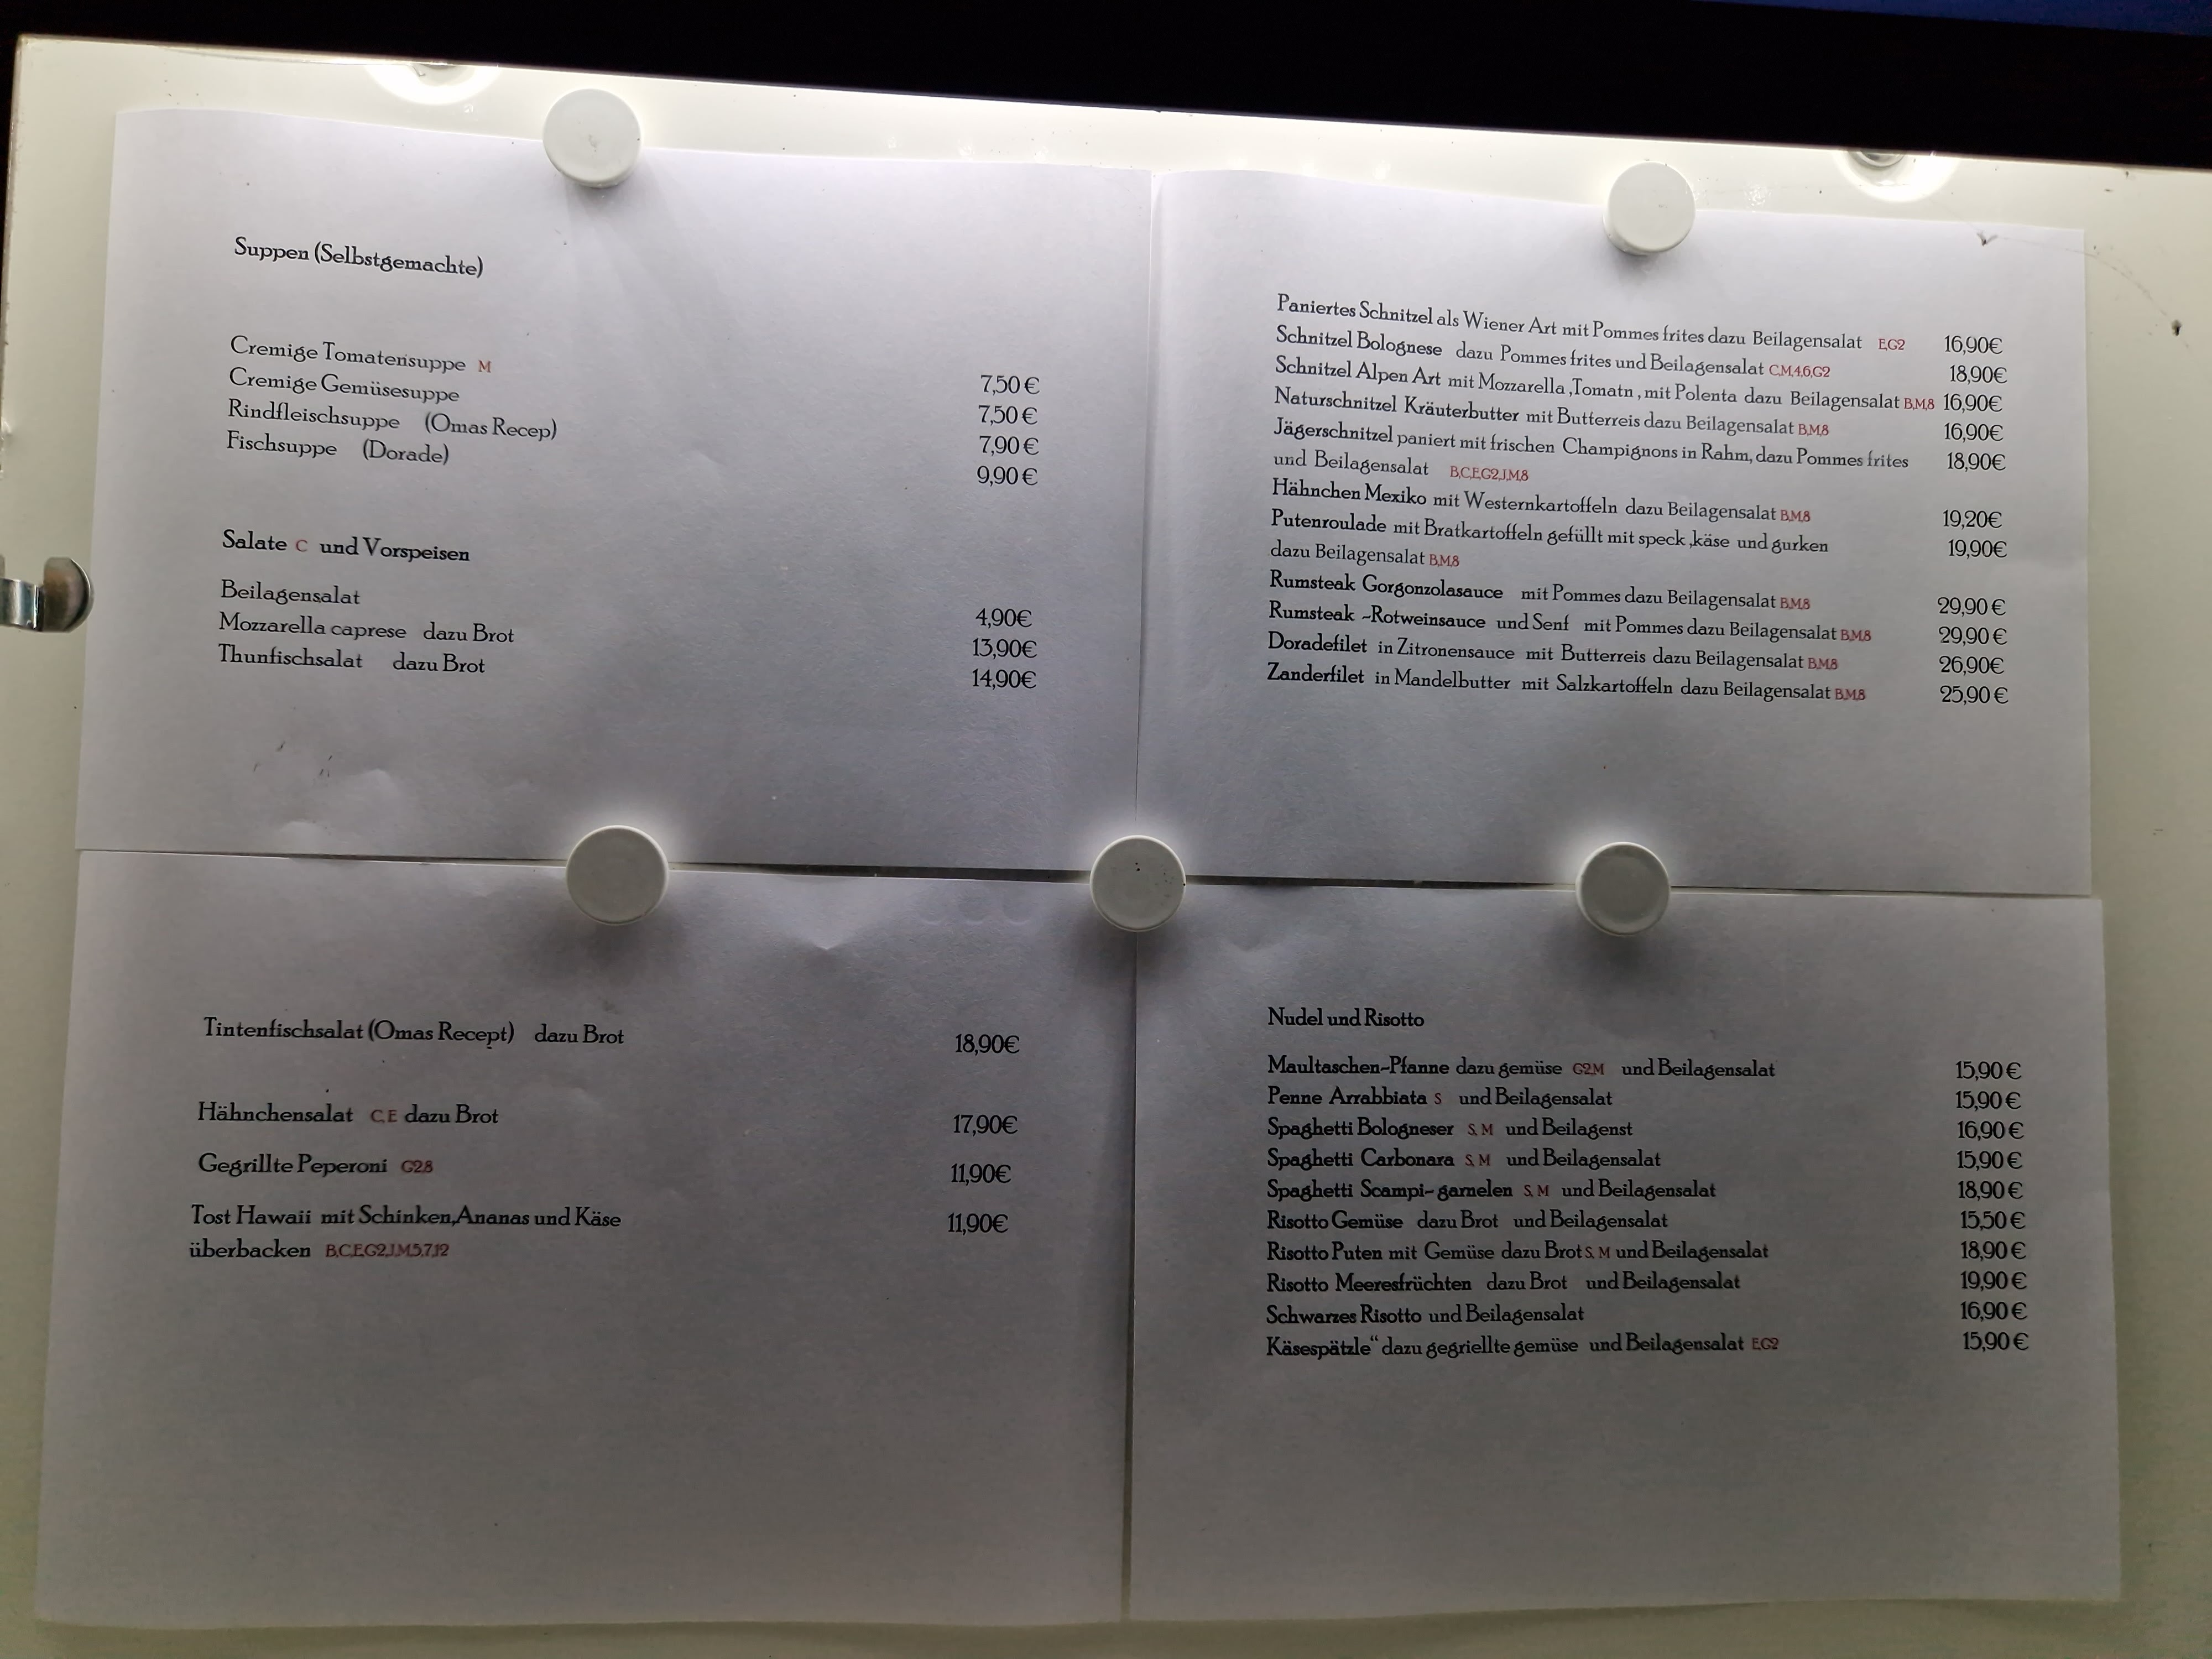 Suppen (Selbstgemachte)
Cremige Tomatensuppe M 7,50 €
Cremige Gemüsesuppe 7,50 €
Rindfleischsuppe (Omas Recep) 7,90 €
Fischsuppe (Dorade) 9,90 €
Salate C und Vorspeisen
Beilagensalat 4,90€
Mozzarella caprese dazu Brot 13,90€
Thunfischsalat dazu Brot 14,90€
Paniertes Schnitzel als Wiener Art mit Pommes frites dazu Beilagensalat E,G2 16,90€
Schnitzel Bolognese dazu Pommes frites und Beilagensalat C,M,4,6,G2 18,90€
Schnitzel Alpen Art mit Mozzarella ,Tomatn , mit Polenta dazu Beilagensalat B,M,8 16,90€
Naturschnitzel Kräuterbutter mit Butterreis dazu Beilagensalat B,M,8 16,90€
Jägerschnitzel paniert mit frischen Champignons in Rahm, dazu Pommes frites 18,90€
und Beilagensalat B,C,E,G2,J,M,8
Hähnchen Mexiko mit Westernkartoffeln dazu Beilagensalat B,M,8 19,20€
Putenroulade mit Bratkartoffeln gefüllt mit speck ,käse und gurken 19,90€
dazu Beilagensalat B,M,8
Rumsteak Gorgonzolasauce mit Pommes dazu Beilagensalat B,M,8 29,90 €
Rumsteak -Rotweinsauce und Senf mit Pommes dazu Beilagensalat B,M,8 29,90 €
Doradefilet in Zitronensauce mit Butterreis dazu Beilagensalat B,M,8 26,90€
Zanderfilet in Mandelbutter mit Salzkartoffeln dazu Beilagensalat B,M,8 25,90 €
Tintenfischsalat (Omas Recept) dazu Brot 18,90€
Hähnchensalat C,E dazu Brot 17,90€
Gegrillte Peperoni G2,8 11,90€
Tost Hawaii mit Schinken,Ananas und Käse 11,90€
überbacken B,C,E,G2,J,M,5,7,12
Nudel und Risotto
Maultaschen-Pfanne dazu gemüse G2,M und Beilagensalat 15,90 €
Penne Arrabbiata S und Beilagensalat 15,90 €
Spaghetti Bologneser S, M und Beilagenst 16,90 €
Spaghetti Carbonara S, M und Beilagensalat 15,90 €
Spaghetti Scampi- garnelen S, M und Beilagensalat 18,90 €
Risotto Gemüse dazu Brot und Beilagensalat 15,50 €
Risotto Puten mit Gemüse dazu Brot S, M und Beilagensalat 18,90 €
Risotto Meeresfrüchten dazu Brot und Beilagensalat 19,90 €
Schwarzes Risotto und Beilagensalat 16,90 €
Käsespätzle“ dazu gegriellte gemüse und Beilagensalat E,G2 15,90 €